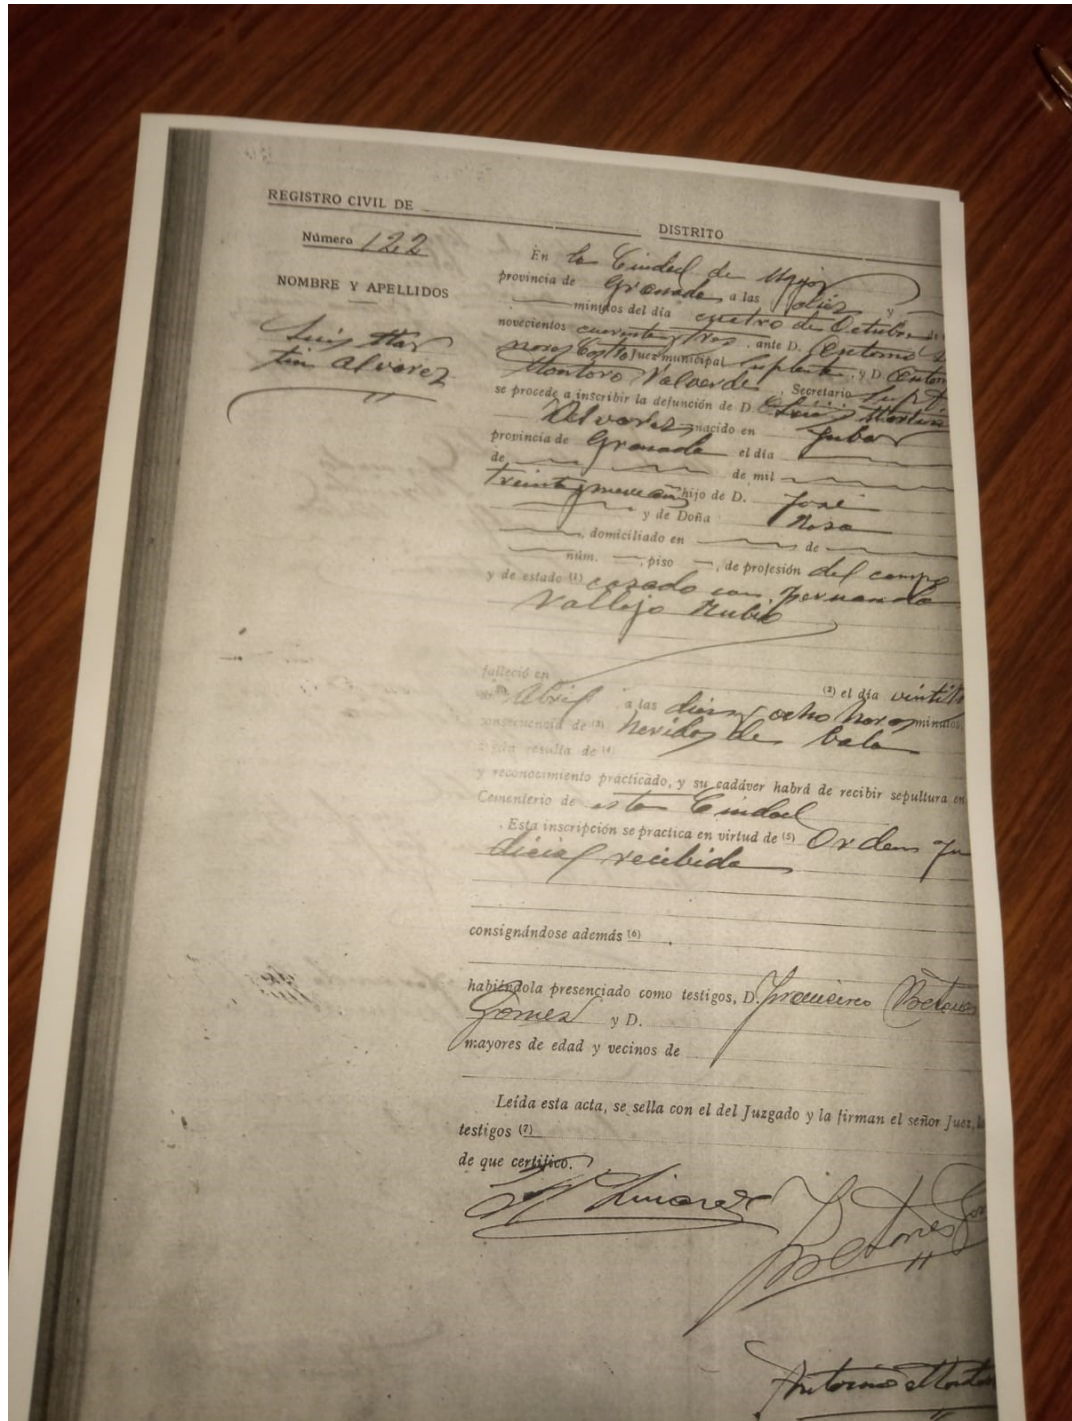 REGISTRO CIVIL DE
DISTRITO
Número 122
NOMBRE Y APELLIDOS
Luis Mar
tin Alvarez
En la Ciudad de Ugijar
provincia de Granada a las diez y
minutos del día cuatro de Octubre de
novecientos cuarenta y tres, ante D. Antonio
Juez municipal Suplente, y D. Anton
Montoro Valverde, Secretario Supt
se procede a inscribir la defunción de D. Luis Martin
Alvarez nacido en Jubar
provincia de Granada el día
de de mil
treinta y nueve años hijo de D. José
y de Doña Rosa
, domiciliado en de
núm. , piso , de profesión del campo
y de estado (1) casado con Fernanda
Vallejo Rubio
falleció en (2) el día
Abril a las diez y ocho horas minutos,
consecuencia de (3) heridas de bala
resulta de (4)
y reconocimiento practicado, y su cadáver habrá de recibir sepultura en
Cementerio de esta Ciudad
Esta inscripción se practica en virtud de (5) Orden Ju
dicial recibida
consignándose además (6)
habiéndola presenciado como testigos, D. Francisco
Gomez y D.
mayores de edad y vecinos de
Leída esta acta, se sella con el del Juzgado y la firman el señor Juez,
testigos (7)
de que certifico.
Linares
Antonio Monto